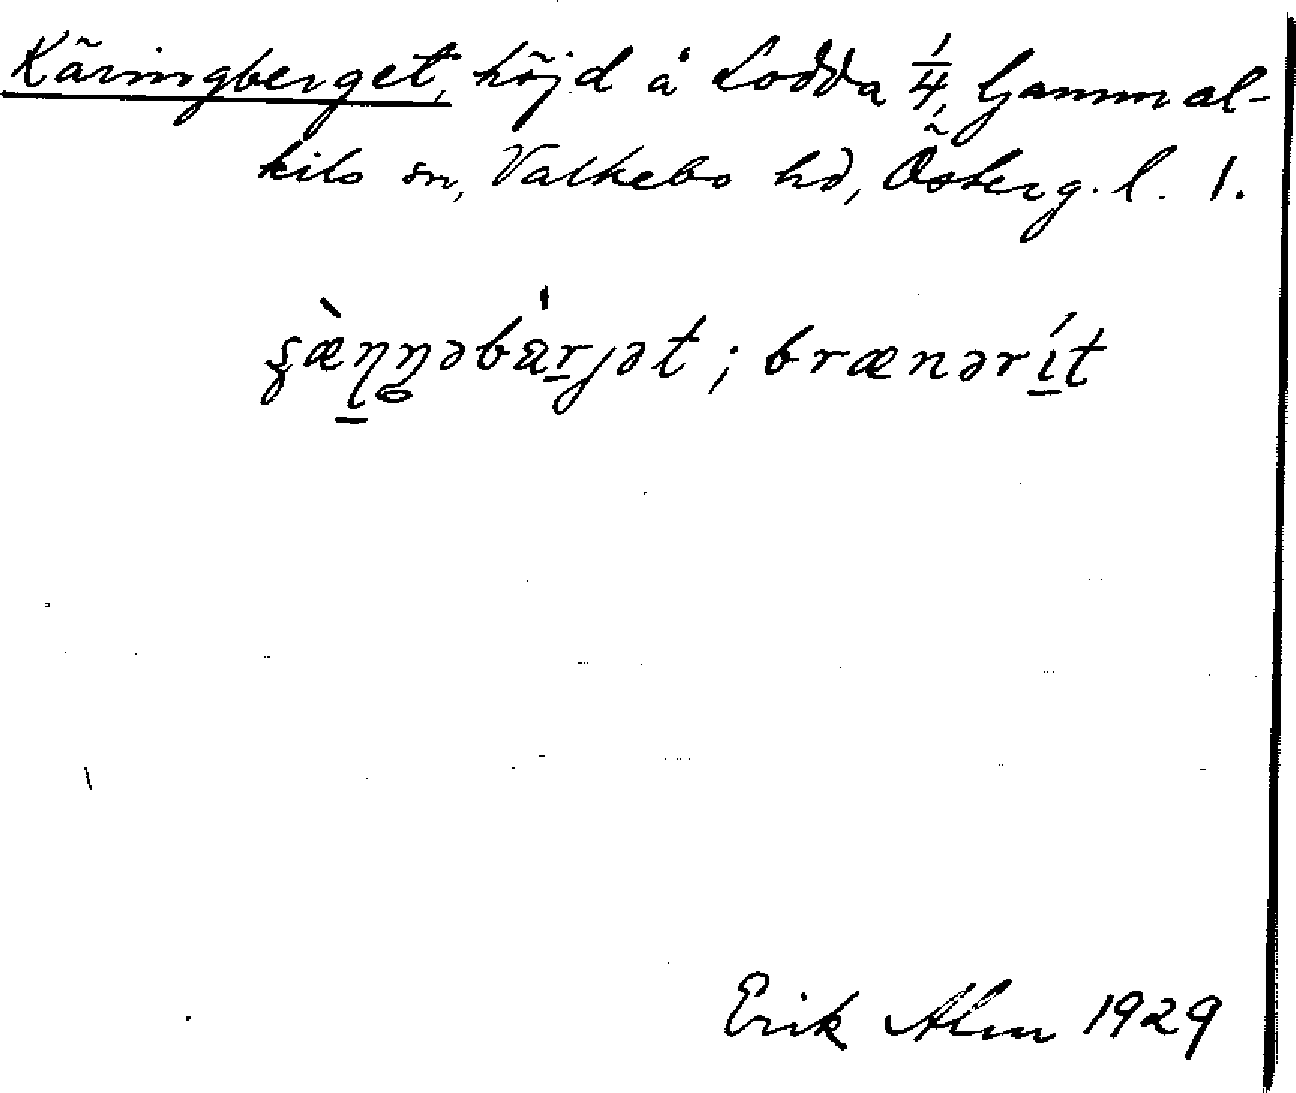 Käringberget, höjd å Lodda 1/4, Gammal-
kils sn, Valkebo hd, Österg. l. 1.
brænərít
Erik Alm 1929